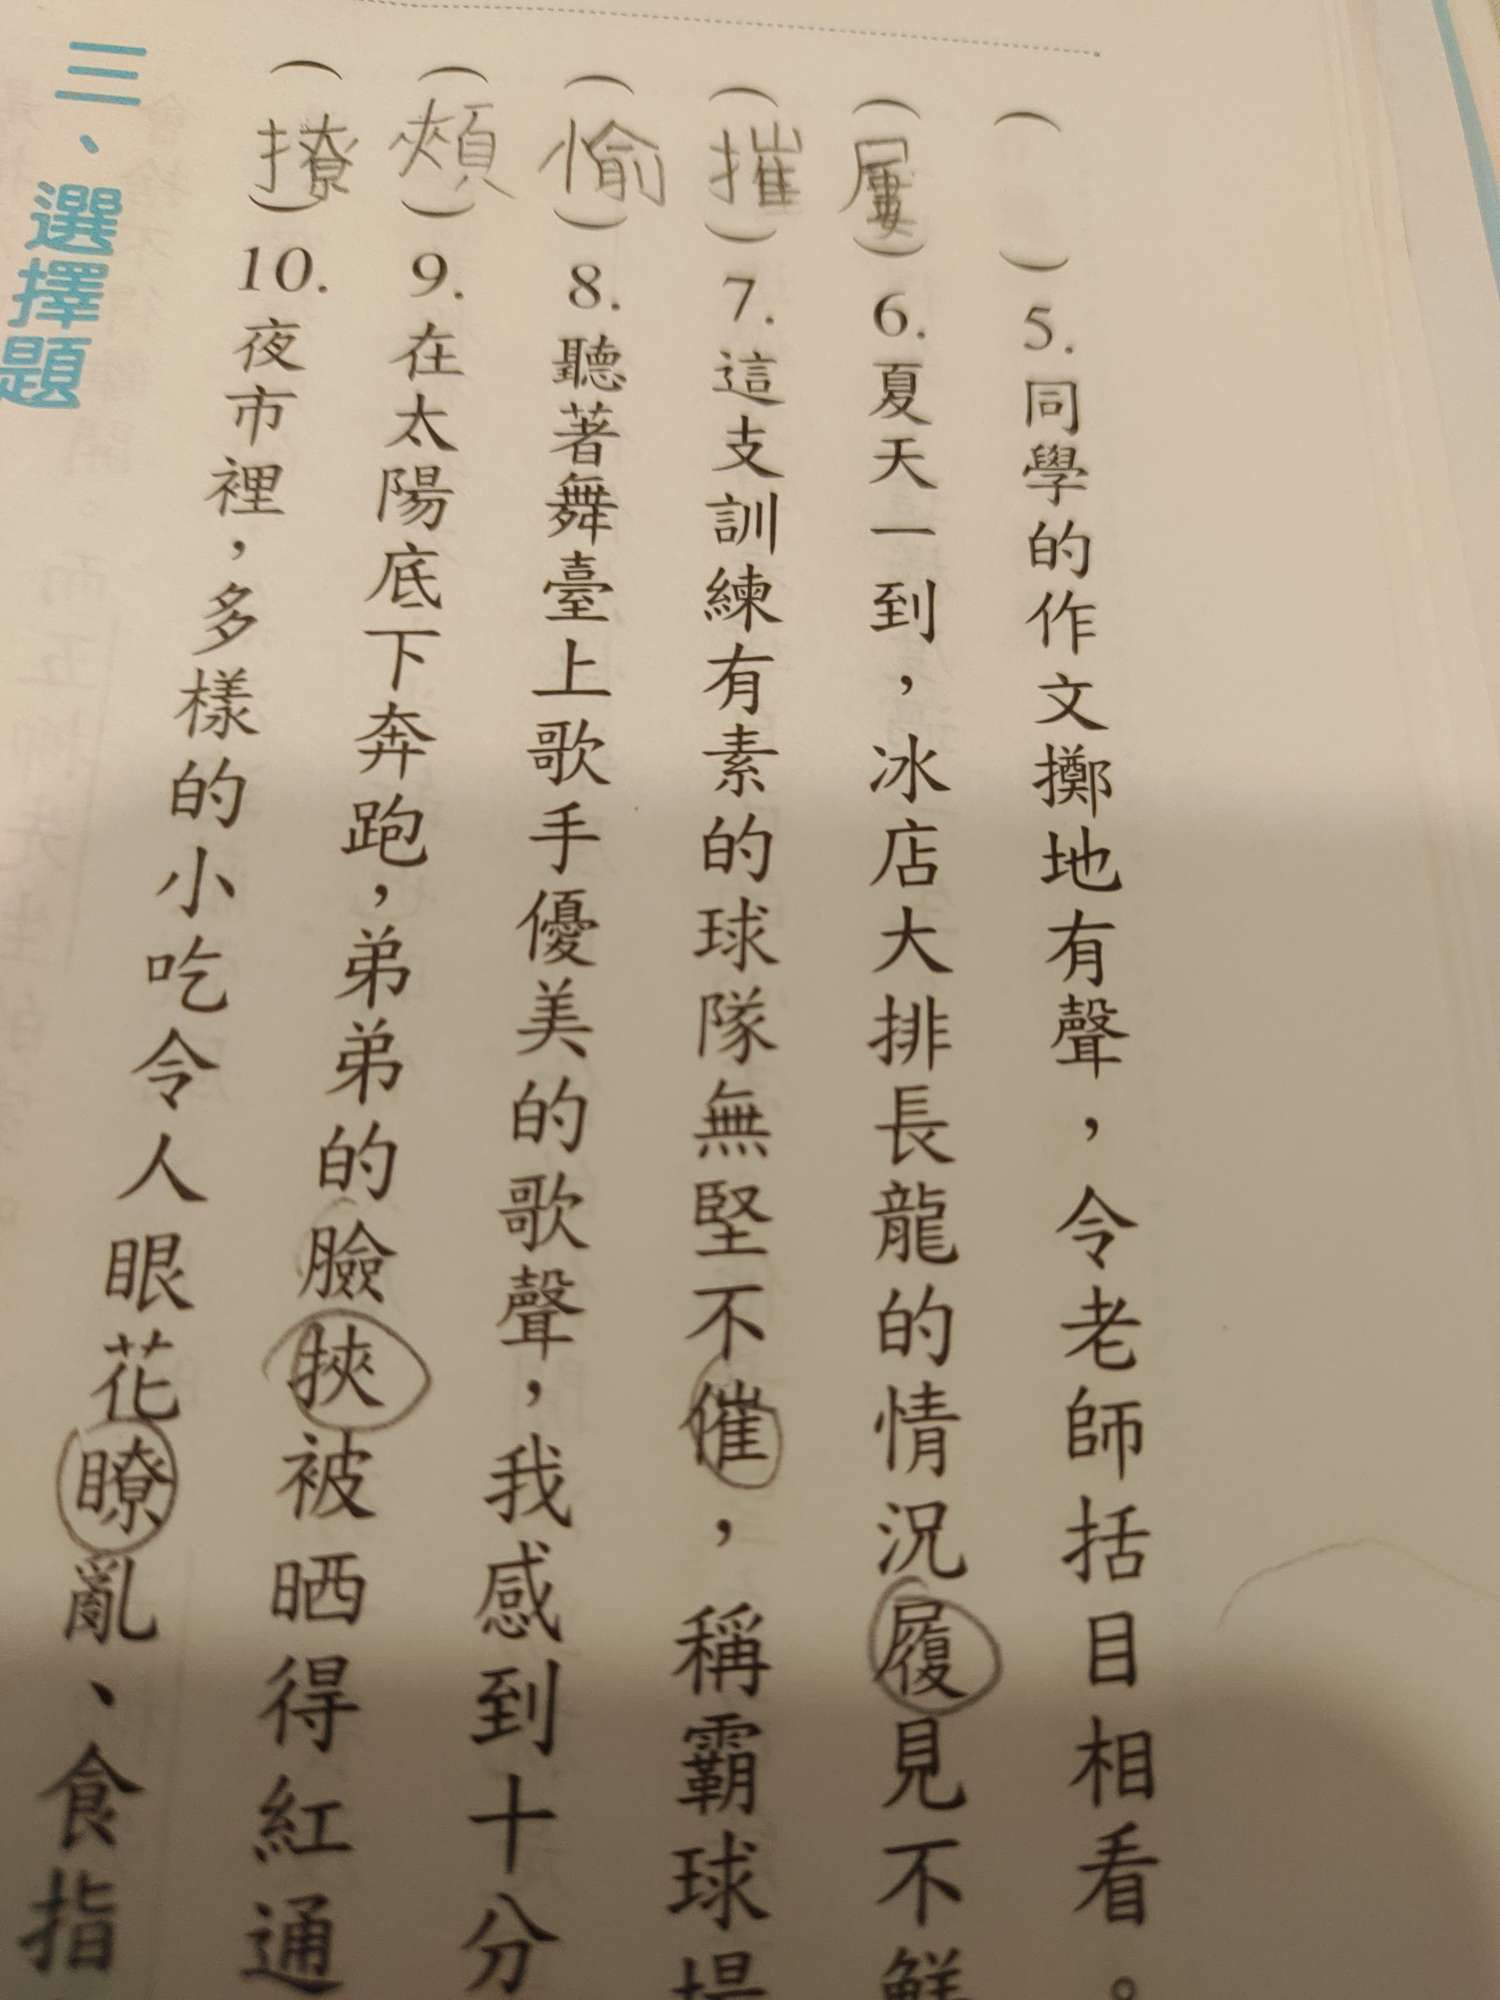 （　）5. 同學的作文擲地有聲，令老師括目相看。
（屢）6. 夏天一到，冰店大排長龍的情況履見不鮮
（摧）7. 這支訓練有素的球隊無堅不催，稱霸球場
（愉）8. 聽著舞臺上歌手優美的歌聲，我感到十分
（頰）9. 在太陽底下奔跑，弟弟的臉挾被晒得紅通
（撩）10. 夜市裡，多樣的小吃令人眼花瞭亂、食指
三、選擇題